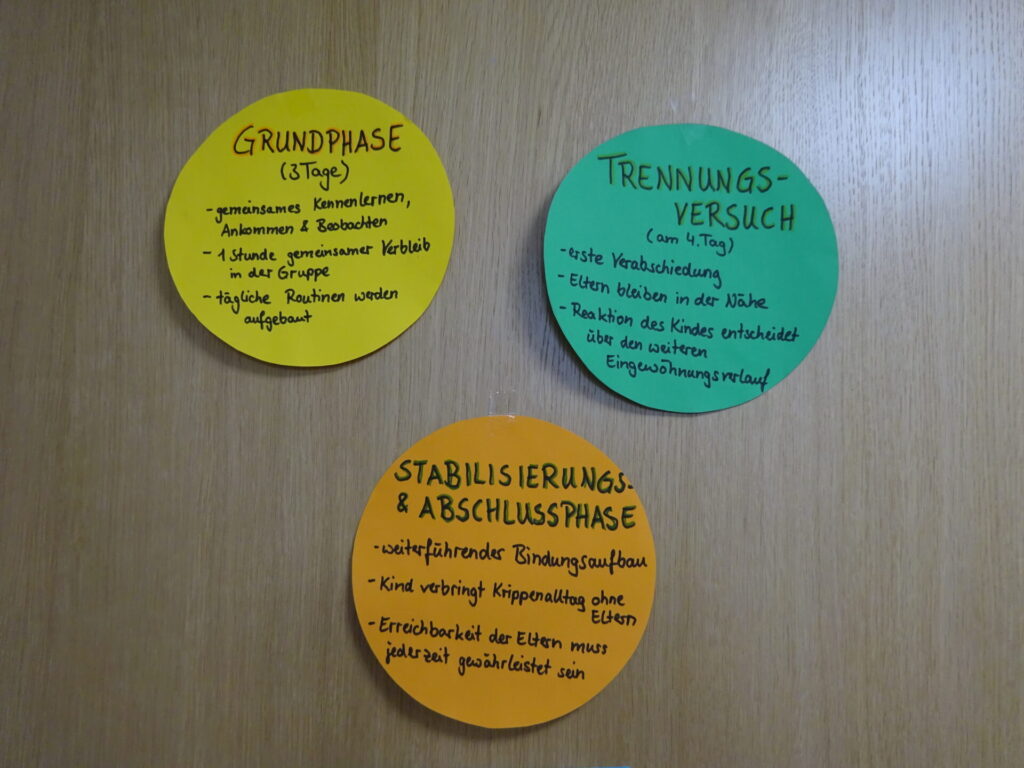 GRUNDPHASE
(3 Tage)
- gemeinsames Kennenlernen,
Ankommen & Beobachten
- 1 Stunde gemeinsamer Verbleib
in der Gruppe
- tägliche Routinen werden
aufgebaut
TRENNUNGS-
VERSUCH
(am 4. Tag)
- erste Verabschiedung
- Eltern bleiben in der Nähe
- Reaktion des Kindes entscheidet
über den weiteren
Eingewöhnungsverlauf
STABILISIERUNGS-
& ABSCHLUSSPHASE
- weiterführender Bindungsaufbau
- Kind verbringt Krippenalltag ohne
Eltern
- Erreichbarkeit der Eltern muss
jederzeit gewährleistet sein